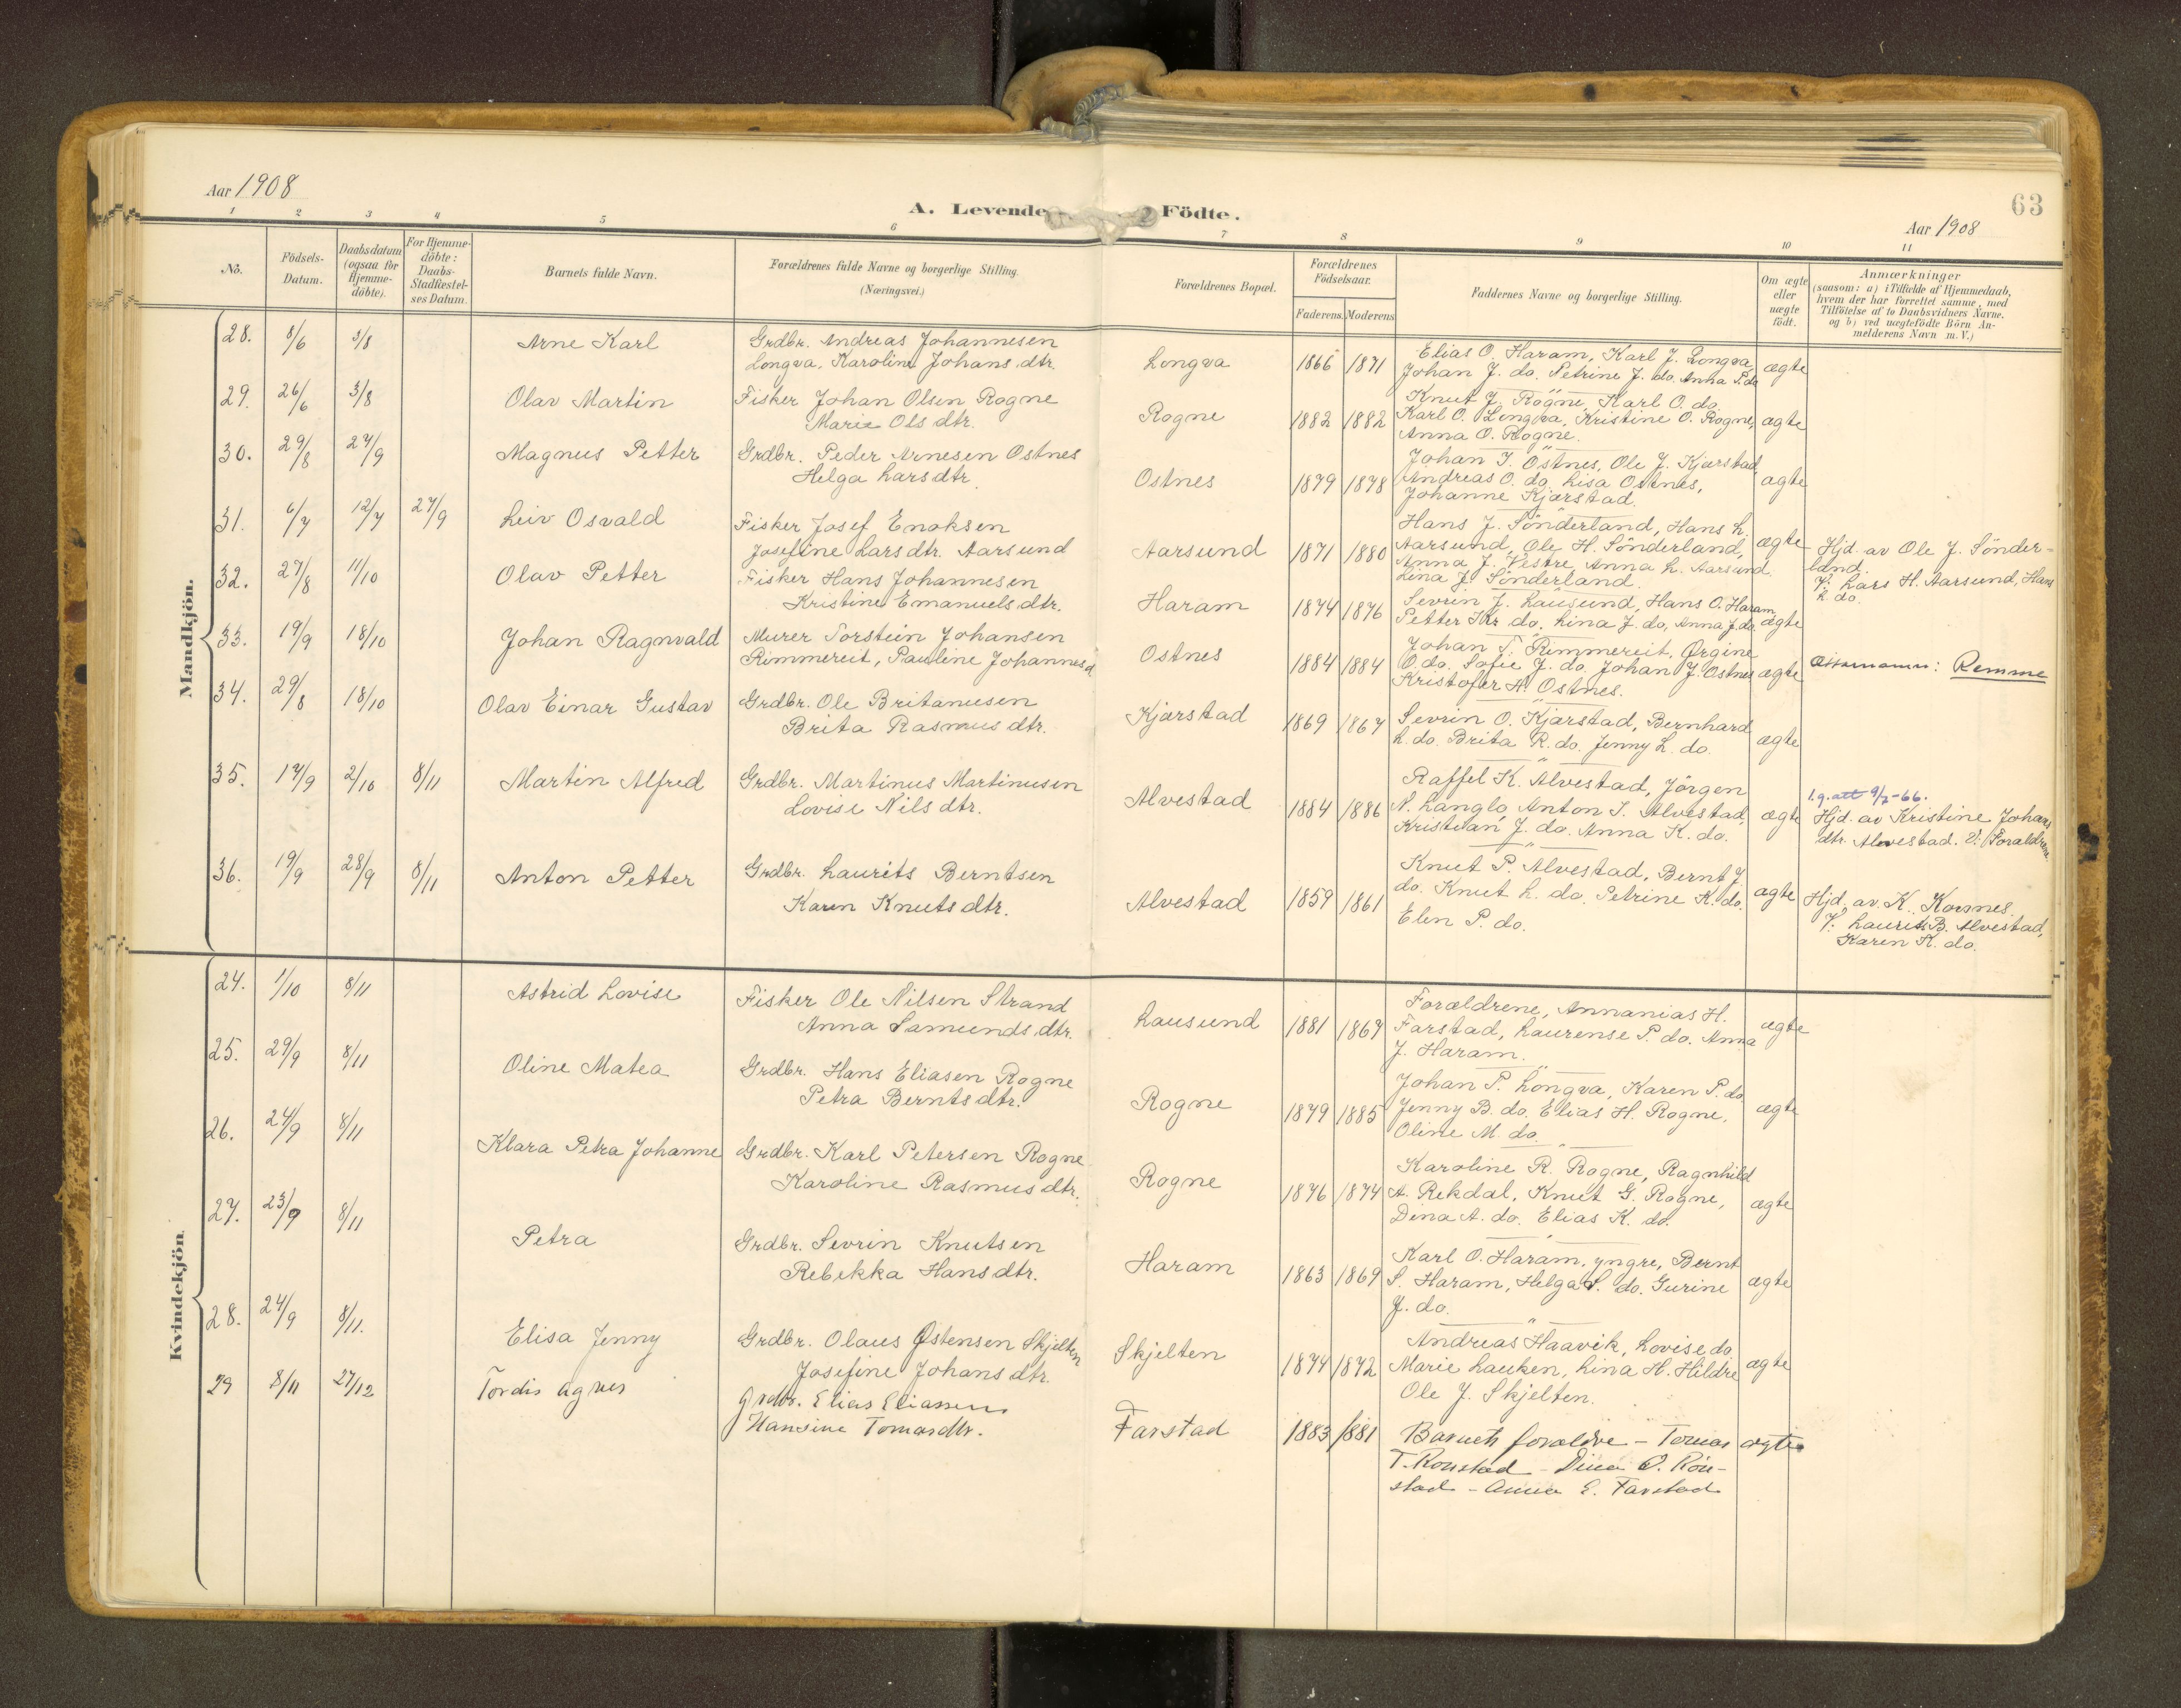 63
Aar 1908
A. Levende Födte.
Aar 1908
1 2 3 4 5 6 7 8 9 10 11
No.
Födsels-
Datum.
Daabsdatum
(ogsaa for
Hjemme-
döbte).
For Hjemme-
döbte:
Daabs-
Stadfæstel-
ses Datum.
Barnets fulde Navn.
Forældrenes fulde Navne og borgerlige Stilling.
(Næringsvei.)
Forældrenes Bopæl.
Forældrenes
Födselsaar.
Faderens. Moderens
Faddernes Navne og borgerlige Stilling.
Om ægte
eller
uægte
födt.
Anmærkninger
(saasom: a) i Tilfælde af Hjemmedaab,
hvem der har forrettet samme, med
Tilföielse af to Daabsvidners Navne.
og b) ved uægtefödte Börn An-
melderens Navn m. V.)
Mandkjön.
28. 8/6 3/8 Arne Karl
Grdbr. Andreas Johannesen
Longva, Karoline Johans dtr.
Longva 1866 1871
Elias O. Haram, Karl J. Longva,
Johan J. do. Petrine J. do. Anna P. do
ægte
29. 26/6 3/8 Olav Martin
Fisker Johan Olsen Rogne
Marie Ols dtr.
Rogne 1882 1882
Knut J. Rogne, Karl O. do
Karl O. Longva, Kristine O. Rogne,
Anna O. Rogne.
ægte
30. 29/8 27/9 Magnus Petter
Grdbr. Peder Arnesen Ostnes
Helga Larsdtr.
Ostnes 1879 1878
Johan I. Östnes, Ole J. Kjærstad,
Andreas O. do. Lisa Ostnes,
Johanne Kjærstad.
ægte
31. 6/7 12/7 27/9 Leiv Osvald
Fisker Josef Enoksen
Josefine Larsdtr. Aarsund
Aarsund 1871 1880
Hans J. Sönderland, Hans L.
Aarsund, Ole H. Sönderland,
Anna J. Vestre, Anna L. Aarsund.
Lina J. Sönderland.
ægte
Hjd. av Ole J. Sönder-
land.
V: Lars H. Aarsund, Hans
L. do.
32. 27/8 11/10 Olav Petter
Fisker Hans Johannesen
Kristine Emanuels dtr.
Haram 1874 1876
Sevrin J. Lausund, Hans O. Haram
Petter Kr. do. Lina J. do, Anna J. do.
ægte
33. 19/9 18/10 Johan Ragnvald
Murer Torstein Johansen
Rimmereit, Pauline Johannesd
Ostnes 1884 1884
Johan T. Rimmereit, Ørgine
O. do. Sofie J. do. Johan J. Ostnes
Kristofer H. Ostnes.
ægte
Remme
34. 29/8 18/10 Olav Einar Gustav
Grdbr. Ole Britanusen
Brita Rasmus dtr.
Kjærstad 1869 1867
Sevrin O. Kjærstad, Bernhard
L. do. Brita R. do. Jenny L. do.
ægte
35. 17/9 2/10 8/11 Martin Alfred
Grdbr. Martinus Martinusen
Lovise Nils dtr.
Alvestad 1884 1886
Raffel K. Alvestad, Jörgen
N. Langlo, Anton I. Alvestad,
Kristian J. do. Anna K. do.
ægte
l.g. att 9/3-66.
Hjd. av Kristine Johans
dtr. Alvestad. V: Forældrene.
36. 19/9 28/9 8/11 Anton Petter
Grdbr. Laurits Berntsen
Karen Knuts dtr.
Alvestad 1859 1861
Knut P. Alvestad, Bernt J.
do. Knut L. do. Petrine K. do.
Elen P. do.
ægte
Hjd. av K. Korsnes.
V: Laurits B. Alvestad,
Karen K. do.
Kvindekjön.
24. 1/10 8/11 Astrid Lovise
Fisker Ole Nilsen Strand
Anna Samunds dtr.
Lausund 1881 1867
Forældrene, Annanias H.
Farstad, Laurense P. do. Anna
J. Haram.
ægte
25. 29/9 8/11 Oline Matea
Grdbr. Hans Eliasen Rogne
Petra Bernts dtr.
Rogne 1879 1885
Johan P. Longva, Karen P. do
Jenny B. do. Elias H. Rogne,
Oline M. do.
ægte
26. 24/9 8/11 Klara Petra Johanne
Grdbr. Karl Petersen Rogne
Karoline Rasmus dtr.
Rogne 1876 1874
Karoline R. Rogne, Ragnhild
A. Rekdal, Knut G. Rogne,
Dina A. do. Elias K. do.
ægte
27. 23/9 8/11 Petra
Grdbr. Sevrin Knutsen
Rebekka Hans dtr.
Haram 1863 1869
Karl O. Haram, yngre, Bernt
S. Haram, Helga S. do. Gurine
J. do.
ægte
28. 24/9 8/11. Elisa Jenny
Grdbr. Olaus Østensen Skjelten
Josefine Johans dtr.
Skjelten 1874 1872
Andreas Haavik, Lovise do
Marie Lauken, Lina H. Hildre
Ole J. Skjelten.
ægte
29 8/11 27/12 Tordis Agnes
Grdbr. Elias Eliassen
Hansine Tomasdtr.
Farstad 1883 1881
Barnets forældre - Tomas
T. Rönstad - Dina O. Rön-
stad - Anna E. Farstad
ægte